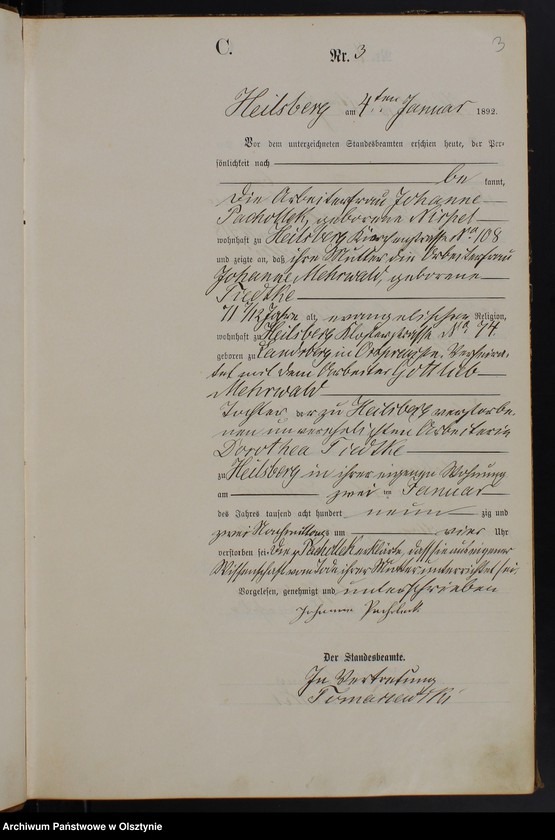 C.
Nr. 3
3
Heilsberg am 4ten Januar 1892.
Vor dem unterzeichneten Standesbeamten erschien heute, der Per-
sönlichkeit nach
be kannt,
die Arbeiterfrau Johanne
Pachollek, geborene
wohnhaft zu Heilsberg Kirchenstrasse No 108
und zeigte an, daß ihre Mutter die Arbeiterfrau
Johanne Mehrwald, geborene
Tiedtke
71 7/12 Jahre alt, evangelischer Religion,
wohnhaft zu Heilsberg Klosterstrasse No 74.
geboren zu Landsberg in Ostpreußen. Verheira-
tet mit dem Arbeiter Gottlieb
Mehrwald
Tochter der zu Heilsberg verstorbe-
nen unverehelichten Arbeiterin
Dorothea Tiedtke
zu Heilsberg in ihrer eigenen Wohnung
am zwei ten Januar
des Jahres tausend acht hundert neun zig und
zwei Nachmittags um vier Uhr
verstorben sei. Die Pachollek erklärte, dass sie aus eigener
Wissenschaft vom Tode ihrer Mutter unterrichtet sei.
Vorgelesen, genehmigt und unterschrieben
Johanne Pachollek
Der Standesbeamte.
In Vertretung
Tomaszewski
Archiwum Państwowe w Olsztynie